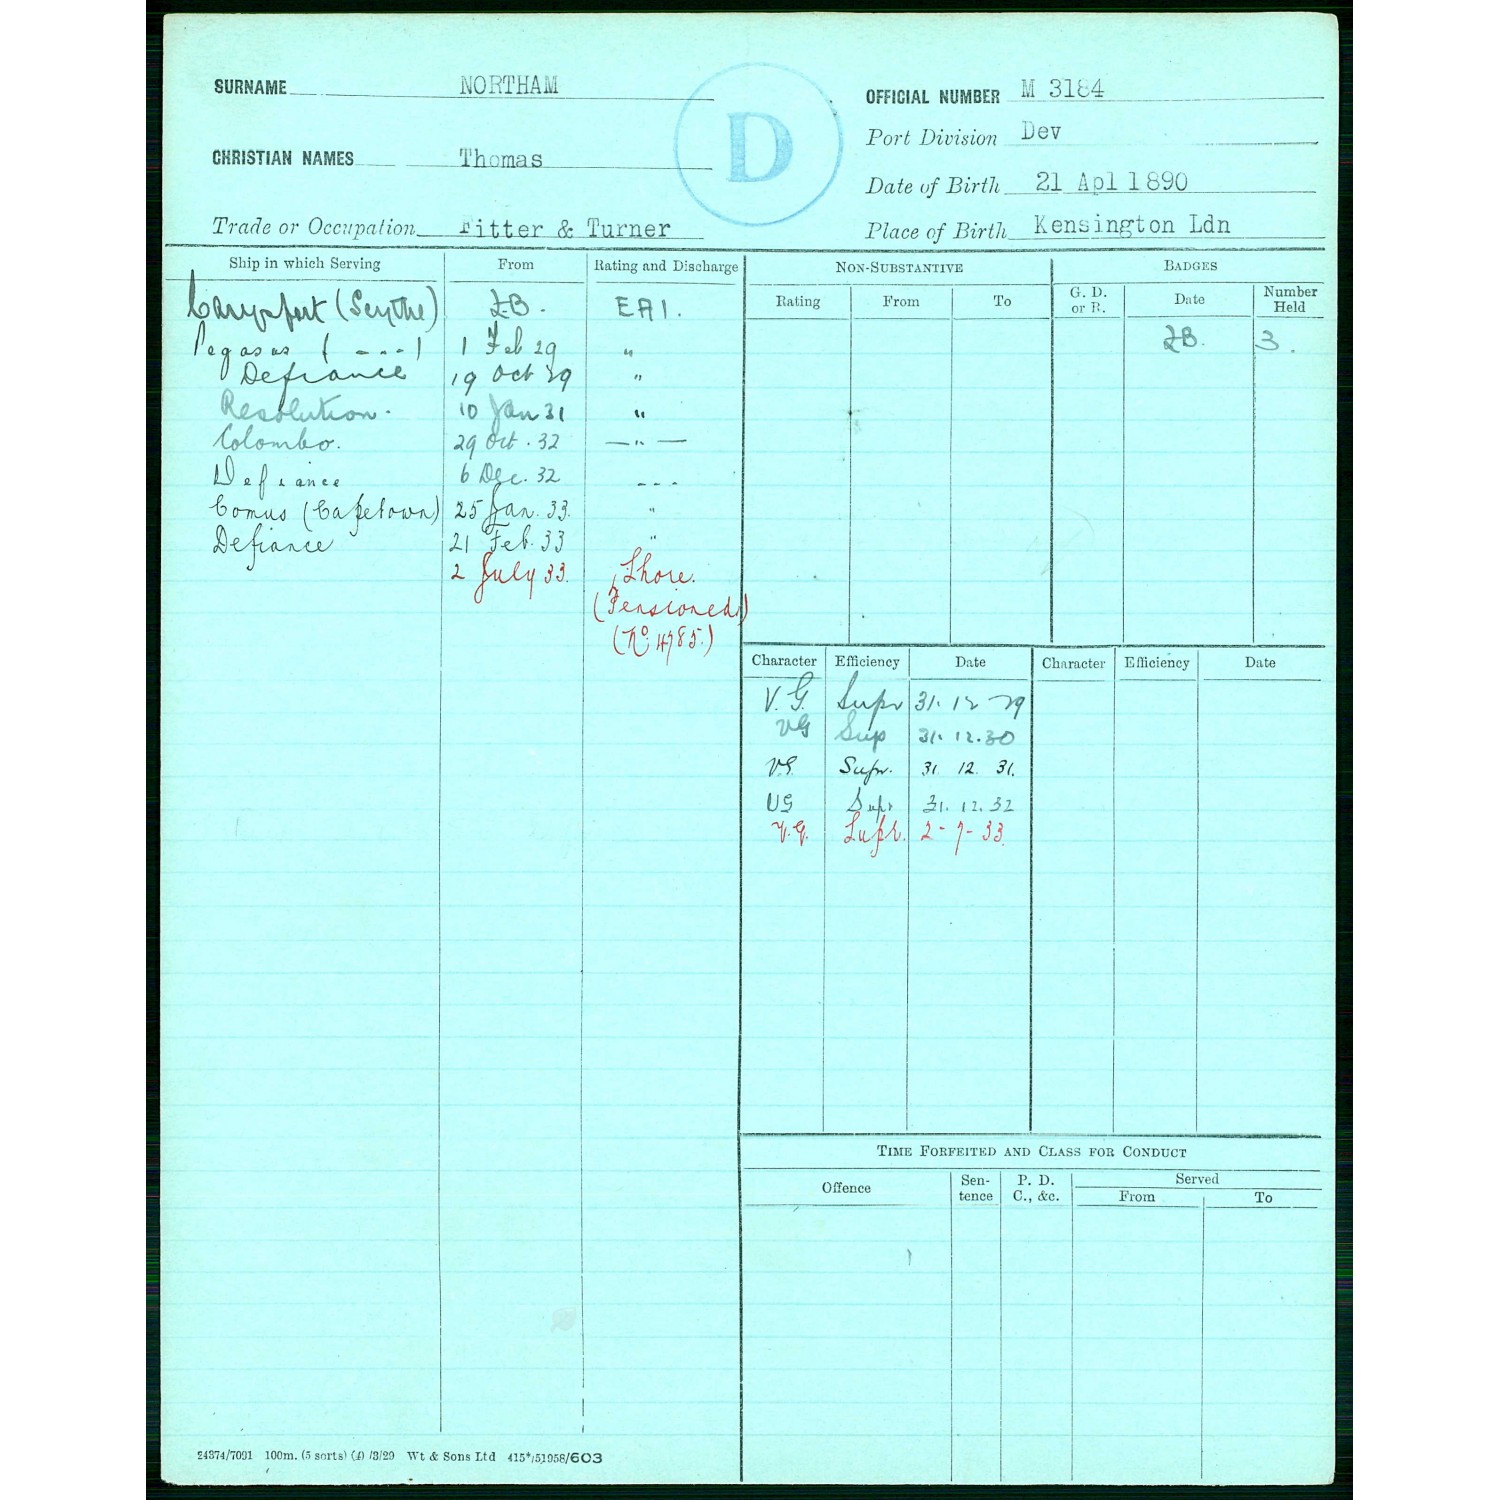 SURNAME NORTHAM
CHRISTIAN NAMES Thomas
Trade or Occupation Fitter & Turner
D
OFFICIAL NUMBER M 3184
Port Division Dev
Date of Birth 21 Apl 1890
Place of Birth Kensington Ldn
Ship in which Serving From Rating and Discharge
Carysfort (Scythe) LB. EA1.
Pegasus ( - - - ) 1 Feb 29 "
Defiance 19 Oct 29 "
Resolution. 10 Jan 31 "
Colombo. 29 Oct. 32 — " —
Defiance 6 Dec. 32 - - -
Comus (Capetown) 25 Jan. 33. "
Defiance 21 Feb. 33 "
2 July 33. Shore.
(Pensioned)
(No. 4785.)
NON-SUBSTANTIVE
Rating From To
BADGES
G. D. or R. Date Number Held
LB. 3.
Character Efficiency Date Character Efficiency Date
V.G. Supr 31. 12 29
VG Sup 31. 12. 30
VG. Supr. 31. 12. 31.
VG Supr 31. 12. 32
V.G. Supr. 2 - 7 - 33.
TIME FORFEITED AND CLASS FOR CONDUCT
Offence Sentence P. D. C., &c. Served
From To
24374/7091 100m. (5 sorts) (4) /3/29 Wt & Sons Ltd 415*/51958/603